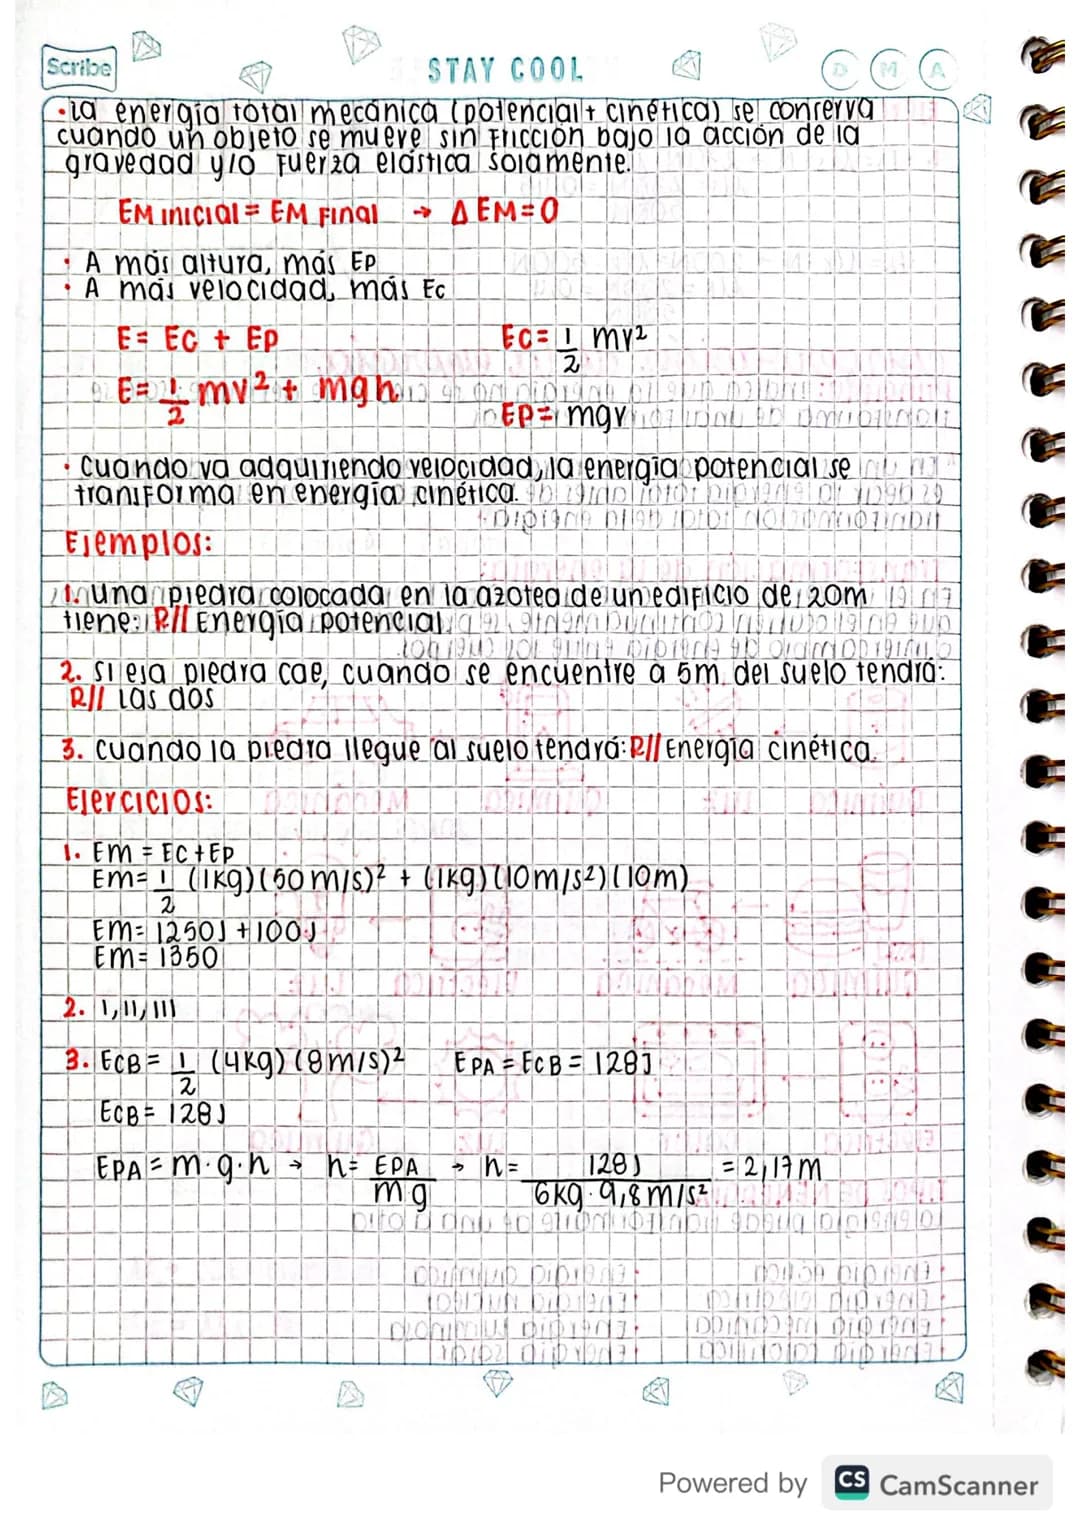 Scribe
STAY COOL
D M A
• La energía total mecánica (potencial + cinética) se conserva
cuando un objeto se mueve sin fricción bajo la acción de la
gravedad y/o fuerza elástica solamente.
EM inicial = EM Final → Δ EM = 0
• A más altura, más Ep
• A más velocidad, más Ec
E = Ec + Ep
Ec = 1/2 mv²
E = 1/2 mv² + mgh
Ep = mgv
• Cuando va adquiriendo velocidad, la energía potencial se
transforma en energía cinética.
Ejemplos:
1. Una piedra colocada en la azotea de un edificio de 20m
tiene: R// Energía potencial
2. Si esa piedra cae, cuando se encuentre a 5m del suelo tendrá:
R// Las dos
3. Cuando la piedra llegue al suelo tendrá: R// Energía cinética.
Ejercicios:
1. Em = Ec + Ep
Em = 1/2 (1kg) (50 m/s)² + (1kg) (10m/s²) (10m)
Em = 1250J + 100J
Em = 1350
2. I, II, III
3. EcB = 1/2 (4kg) (8m/s)² EPA = EcB = 128J
EcB = 128J
EPA = m·g·h → h = EPA/m·g → h = 128J/6kg · 9,8m/s² = 2,17m
Powered by CS CamScanner